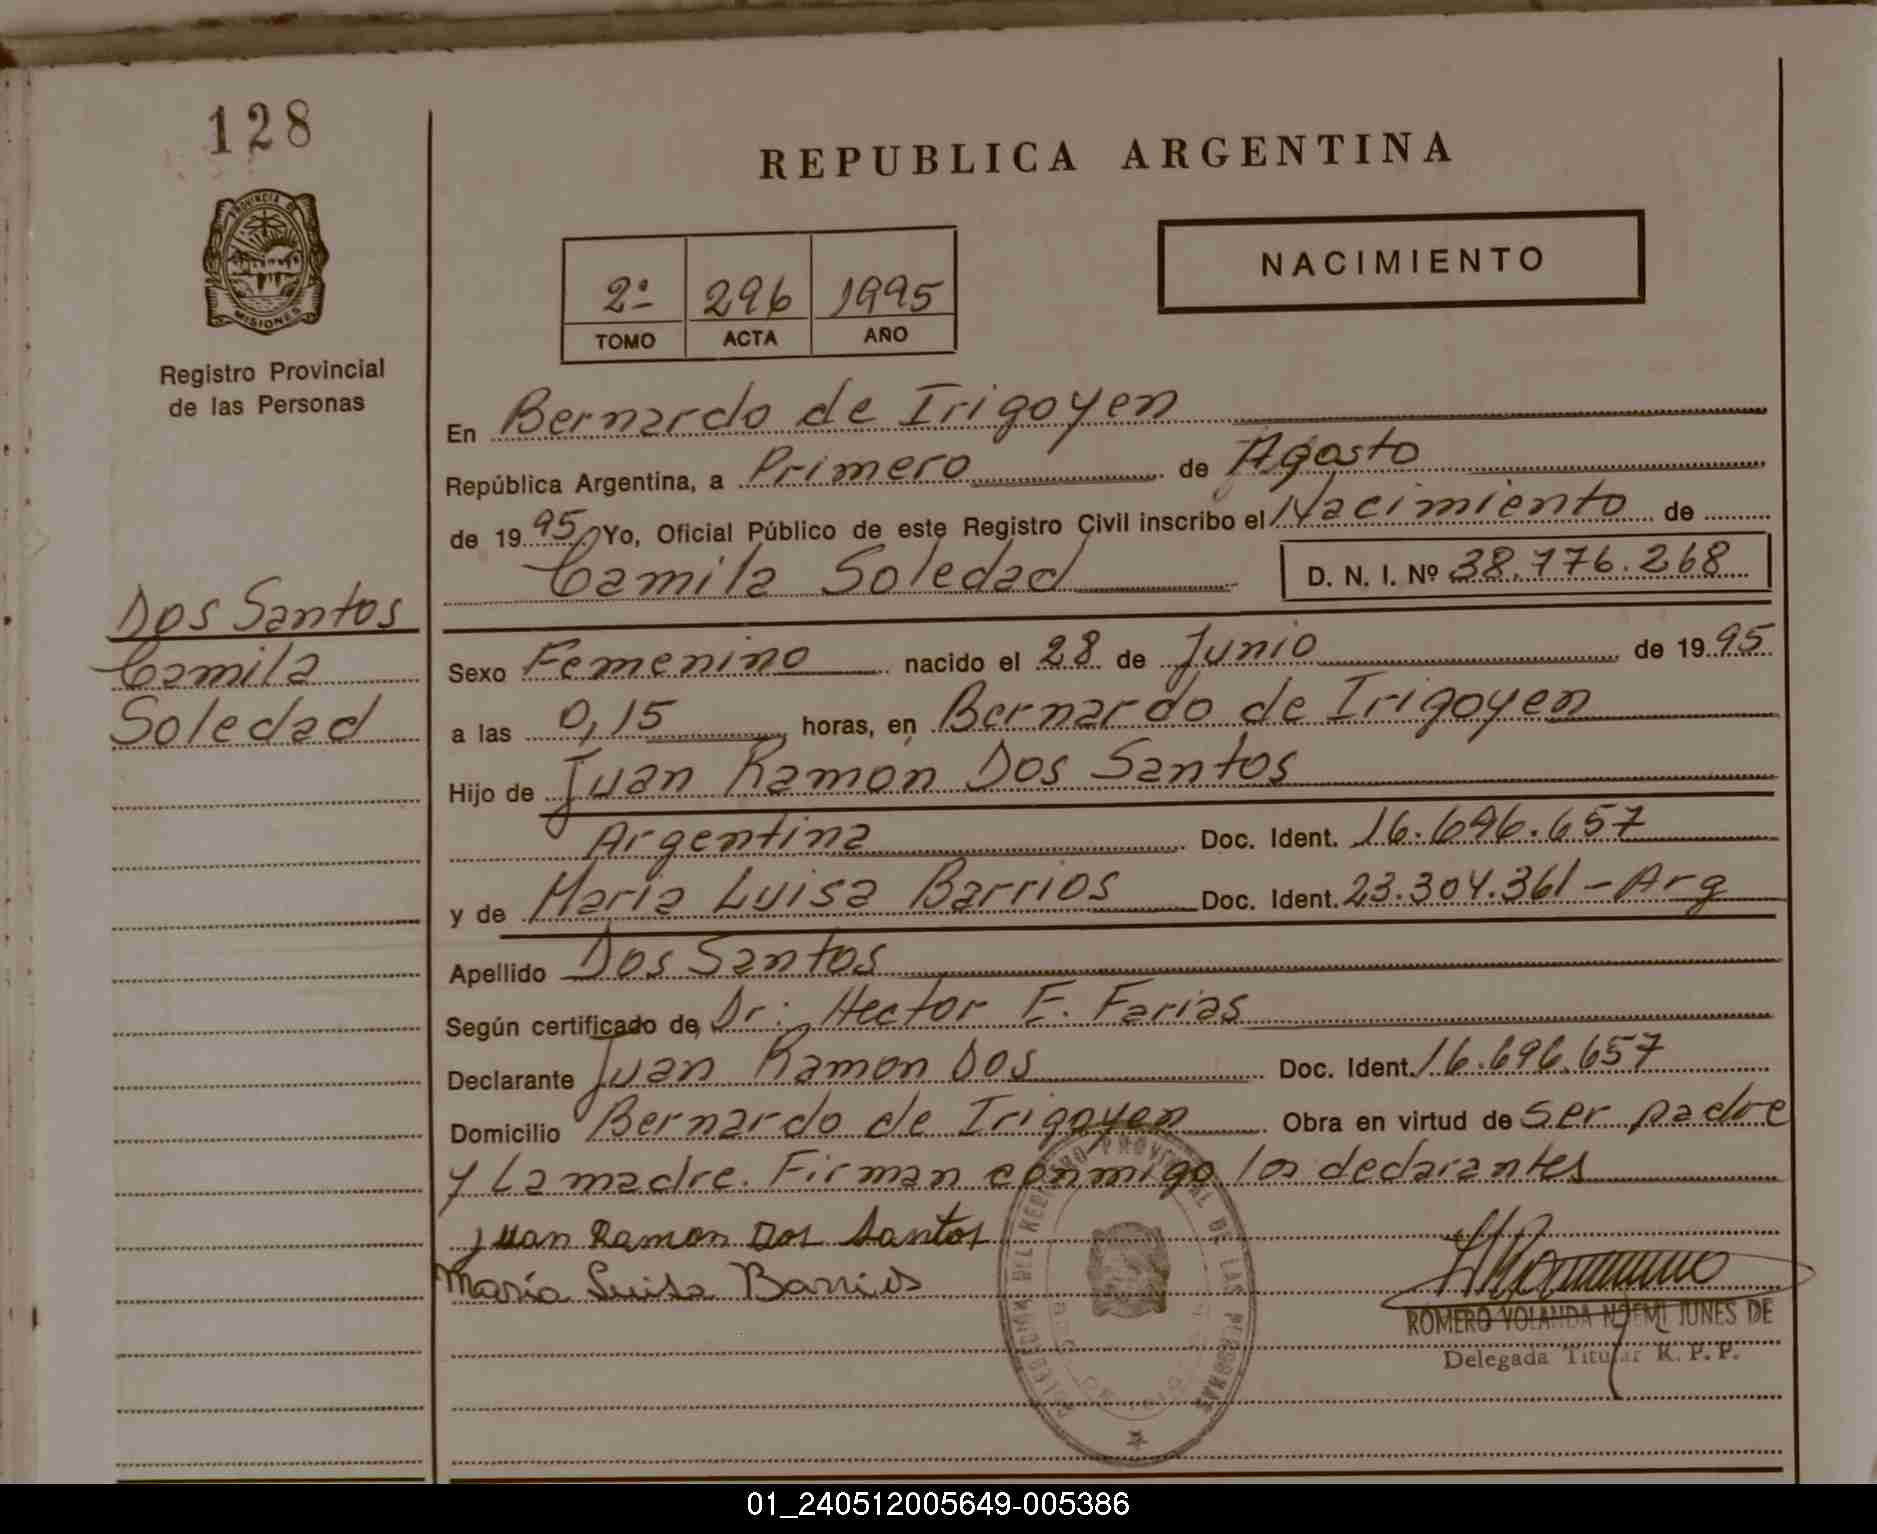 128
PROVINCIA DE
MISIONES
Registro Provincial
de las Personas
Dos Santos
Camila
Soledad
REPUBLICA ARGENTINA
NACIMIENTO
2º 296 1995
TOMO ACTA AÑO
En Bernardo de Irigoyen
República Argentina, a Primero de Agosto
de 1995 Yo, Oficial Público de este Registro Civil inscribo el Nacimiento de
Camila Soledad D. N. I. Nº 38.776.268
Sexo Femenino nacido el 28 de Junio de 1995
a las 0,15 horas, en Bernardo de Irigoyen
Hijo de Juan Ramon Dos Santos
Argentina Doc. Ident. 16.696.657
y de Maria Luisa Barrios Doc. Ident. 23.304.361 - Arg
Apellido Dos Santos
Según certificado de Dr: Hector E. Farias
Declarante Juan Ramon Dos Doc. Ident. 16.696.657
Domicilio Bernardo de Irigoyen Obra en virtud de ser padre
y La madre. Firman conmigo los declarantes
Juan Ramon Dos Santos
María Luisa Barrios
REGISTRO PROVINCIAL DE LAS PERSONAS
ROMERO YOLANDA NOEMI JUNES DE
Delegada Titular R. P. P.
01_240512005649-005386